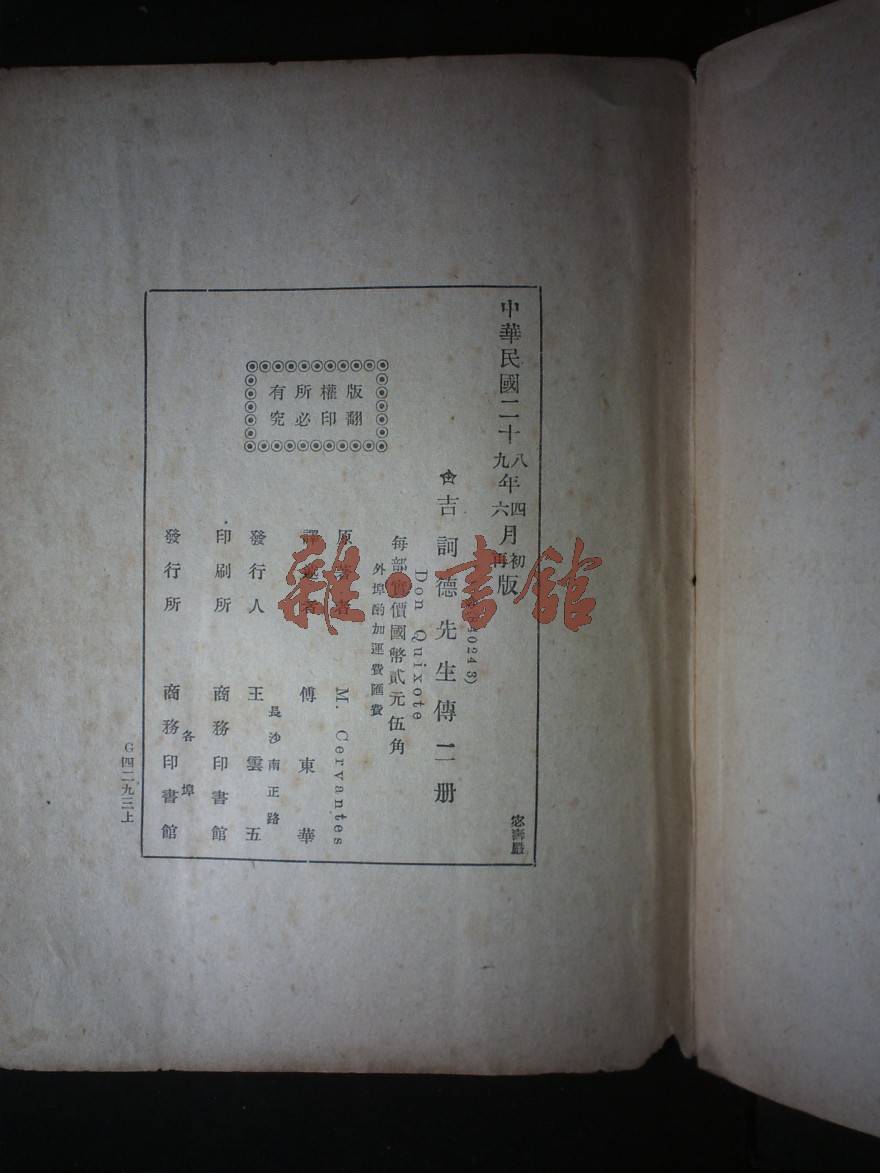 中華民國二十八年四月初版
九年六月再版
(82024 3)
吉訶德先生傳二册
Don Quixote
每部實價國幣貳元伍角
外埠酌加運費匯費
原著者 M. Cervantes
譯述者 傅東華
發行人 王雲五
長沙南正路
印刷所 商務印書館
發行所 商務印書館
各埠
版權所有
翻印必究
G四二九三上
雜·書館